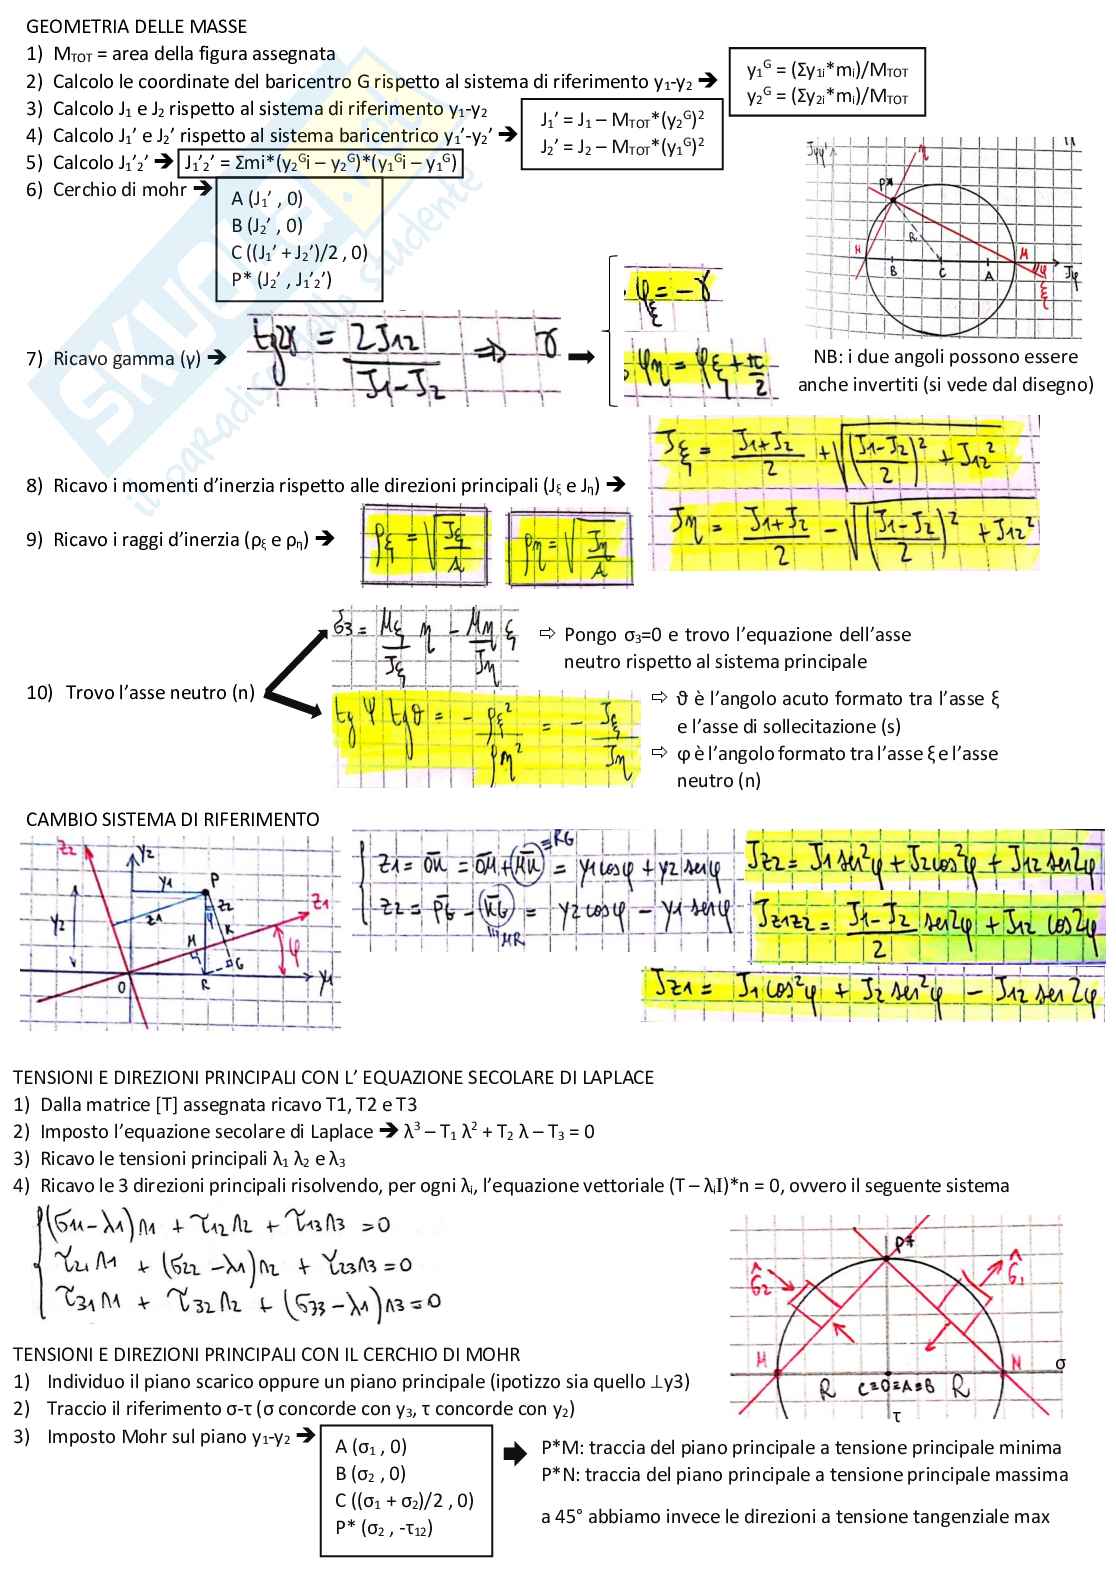 GEOMETRIA DELLE MASSE
1) M_TOT = area della figura assegnata
2) Calcolo le coordinate del baricentro G rispetto al sistema di riferimento y₁-y₂ ➔
y₁ᴳ = (Σy₁ᵢ*mᵢ)/M_TOT
y₂ᴳ = (Σy₂ᵢ*mᵢ)/M_TOT
3) Calcolo J₁ e J₂ rispetto al sistema di riferimento y₁-y₂
4) Calcolo J₁’ e J₂’ rispetto al sistema baricentrico y₁’-y₂’ ➔
J₁’ = J₁ – M_TOT*(y₂ᴳ)²
J₂’ = J₂ – M_TOT*(y₁ᴳ)²
5) Calcolo J₁’₂’ ➔ J₁’₂’ = Σmi*(y₂ᴳi – y₂ᴳ)*(y₁ᴳi – y₁ᴳ)
6) Cerchio di mohr ➔
A (J₁’ , 0)
B (J₂’ , 0)
C ((J₁’ + J₂’)/2 , 0)
P* (J₂’ , J₁’₂’)
P*
η
R
H
B
C
A
M
φ
Jφ
ξ
7) Ricavo gamma (γ) ➔
tg2γ = 2J₁₂ / (J₁-J₂) ⇒ γ ➡
φξ = -γ
φη = φξ + π/2
NB: i due angoli possono essere
anche invertiti (si vede dal disegno)
8) Ricavo i momenti d’inerzia rispetto alle direzioni principali (Jξ e Jη) ➔
Jξ = (J₁+J₂)/2 + √(((J₁-J₂)/2)² + J₁₂²)
Jη = (J₁+J₂)/2 - √(((J₁-J₂)/2)² + J₁₂²)
9) Ricavo i raggi d’inerzia (ρξ e ρη) ➔
ρξ = √(Jξ/A)
ρη = √(Jη/A)
10) Trovo l’asse neutro (n)
σ₃ = (Mξ/Jξ) η - (Mη/Jη) ξ
⇨ Pongo σ₃=0 e trovo l’equazione dell’asse
neutro rispetto al sistema principale
tg φ tg ϑ = - ρξ²/ρη² = - Jξ/Jη
⇨ ϑ è l’angolo acuto formato tra l’asse ξ
e l’asse di sollecitazione (s)
⇨ φ è l’angolo formato tra l’asse ξ e l’asse
neutro (n)
CAMBIO SISTEMA DI RIFERIMENTO
z₂
y₂
y₁
P
z₂
z₁
z₁
y₂
M
K
G
φ
O
R
y₁
z₁ = = y₁cosφ + y₂senφ
≡RG
z₂ = = y₂cosφ - y₁senφ
MR
Jz₂ = J₁sen²φ + J₂cos²φ + J₁₂ sen2φ
Jz₁z₂ = (J₁-J₂)/2 sen2φ + J₁₂ cos2φ
Jz₁ = J₁cos²φ + J₂sen²φ - J₁₂ sen2φ
TENSIONI E DIREZIONI PRINCIPALI CON L’ EQUAZIONE SECOLARE DI LAPLACE
1) Dalla matrice [T] assegnata ricavo T1, T2 e T3
2) Imposto l’equazione secolare di Laplace ➔ λ³ – T₁ λ² + T₂ λ – T₃ = 0
3) Ricavo le tensioni principali λ₁ λ₂ e λ₃
4) Ricavo le 3 direzioni principali risolvendo, per ogni λᵢ, l’equazione vettoriale (T – λᵢI)*n = 0, ovvero il seguente sistema
(σ₁₁-λ₁)n₁ + τ₁₂n₂ + τ₁₃n₃ = 0
τ₂₁n₁ + (σ₂₂-λ₁)n₂ + τ₂₃n₃ = 0
τ₃₁n₁ + τ₃₂n₂ + (σ₃₃-λ₁)n₃ = 0
P*
σ̂₂
σ̂₁
M
N
σ
R
C≡O≡A≡B
R
τ
TENSIONI E DIREZIONI PRINCIPALI CON IL CERCHIO DI MOHR
1) Individuo il piano scarico oppure un piano principale (ipotizzo sia quello ⊥y3)
2) Traccio il riferimento σ-τ (σ concorde con y₃, τ concorde con y₂)
3) Imposto Mohr sul piano y₁-y₂ ➔
A (σ₁ , 0)
B (σ₂ , 0)
C ((σ₁ + σ₂)/2 , 0)
P* (σ₂ , -τ₁₂)
P*M: traccia del piano principale a tensione principale minima
P*N: traccia del piano principale a tensione principale massima
a 45° abbiamo invece le direzioni a tensione tangenziale max